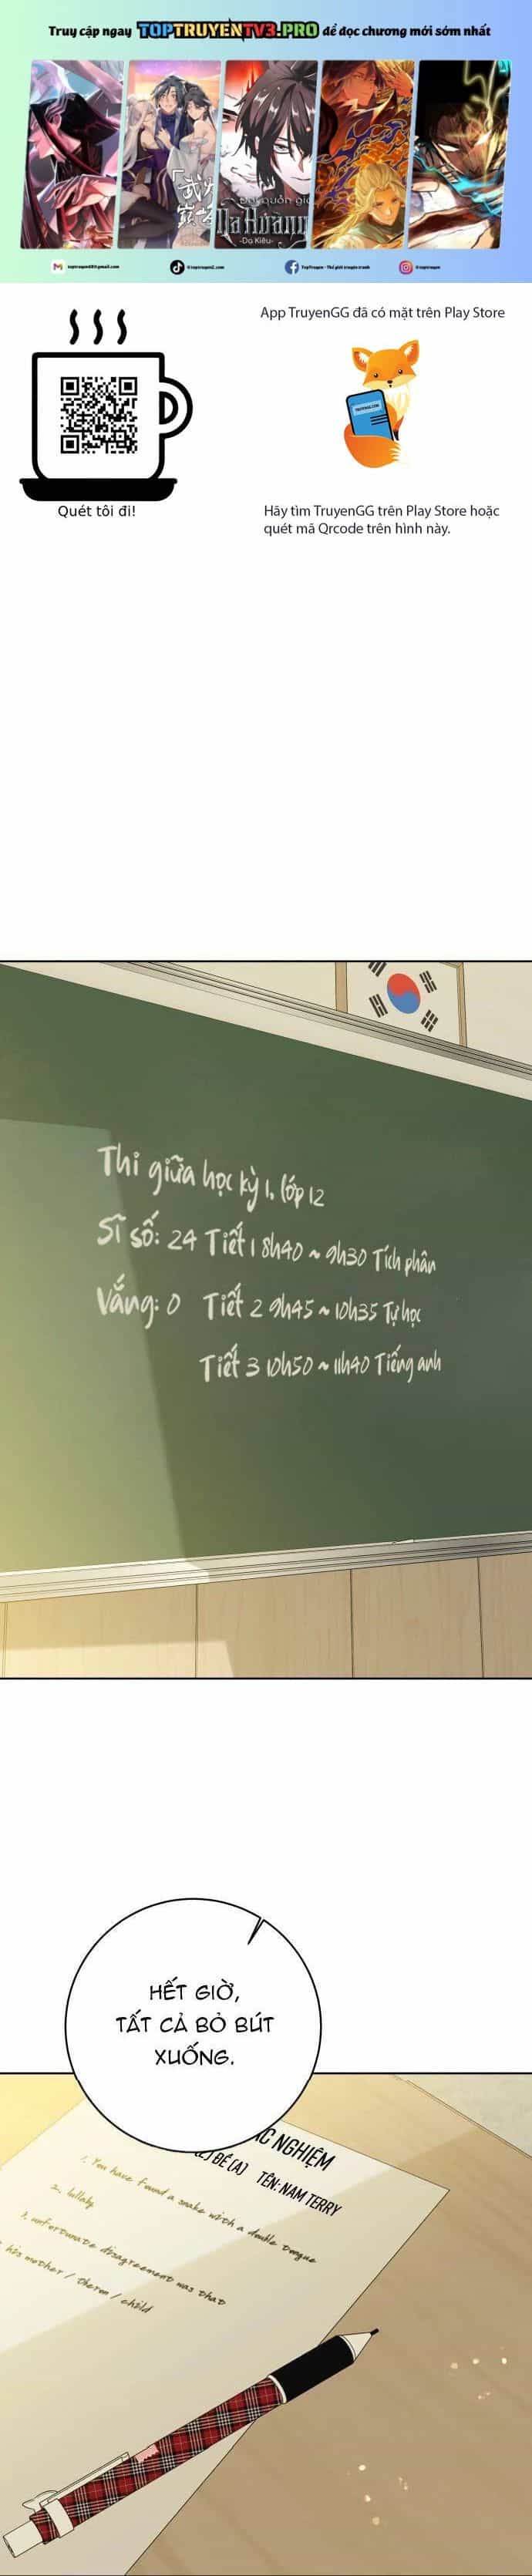 Truy cập ngay TOPTRUYENTV3.PRO để đọc chương mới sớm nhất
Đại quản gia
Ma Hoàng
-Dạ Kiêu-
toptruyen68@gmail.com
@toptruyen2.com
TopTruyen - Thế giới truyện tranh
@toptruyen
App TruyenGG đã có mặt trên Play Store
TRUYENGG.COM
Quét tôi đi!
Hãy tìm TruyenGG trên Play Store hoặc
quét mã Qrcode trên hình này.
Thi giữa học kỳ 1, lớp 12
Sĩ số: 24 Tiết 1 8h40 ~ 9h30 Tích phân
Vắng: 0 Tiết 2 9h45 ~ 10h35 Tự học
Tiết 3 10h50 ~ 11h40 Tiếng anh
HẾT GIỜ,
TẤT CẢ BỎ BÚT
XUỐNG.
NGHIỆM
ĐỀ [A] TÊN: NAM TERRY
1. You have found a snake with a double tongue
2. lullaby
3. unfortunate disagreement was that
his mother / theron / child